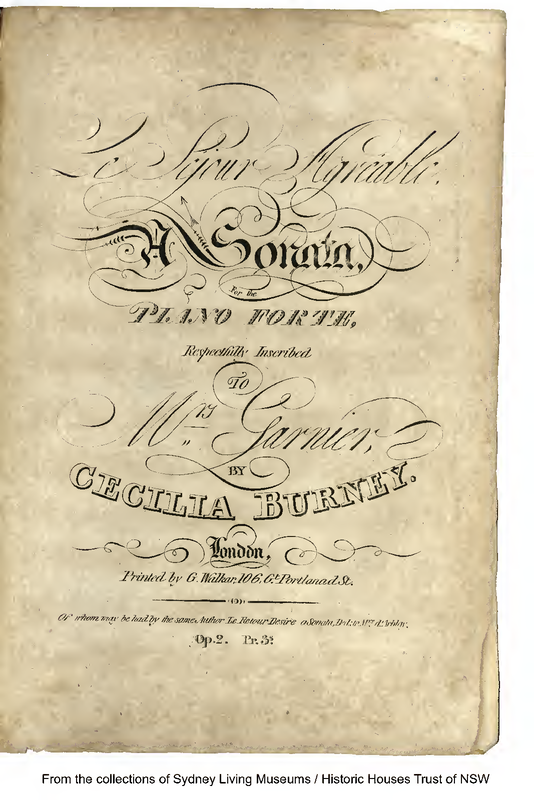 Le Sejour Agréable.
A Sonata,
For the
PIANO FORTE,
Respectfully Inscribed
TO
Mrs. Garnier,
BY
CECILIA BURNEY.
London,
Printed by G. Walker, 106, Gt. Portland St.
Of whom may be had by the same Author Le Retour Desire a Sonata, Ded. to Mrs.
Op. 2. Pr. 3s
From the collections of Sydney Living Museums / Historic Houses Trust of NSW